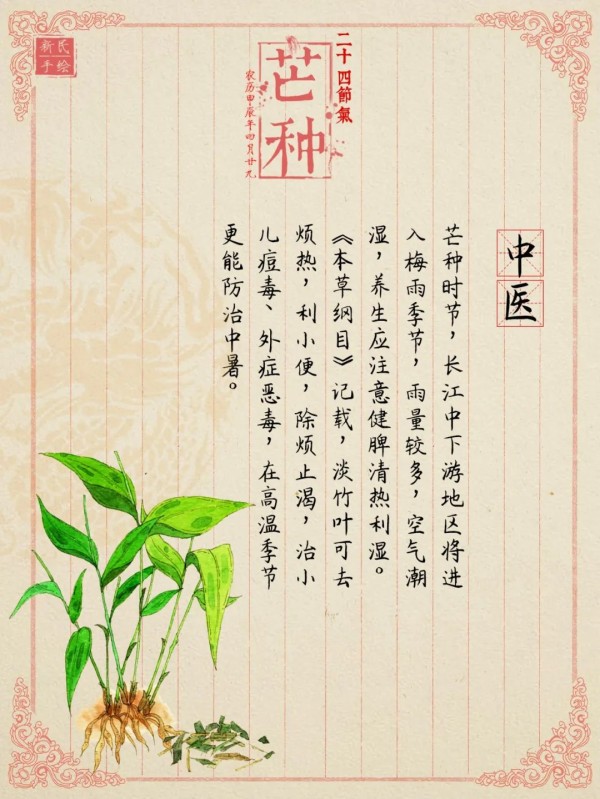 新民
手绘
二十四節氣
芒种
农历甲辰年四月廿九
中医
芒种时节，长江中下游地区将进
入梅雨季节，雨量较多，空气潮
湿，养生应注意健脾清热利湿。
《本草纲目》记载，淡竹叶可去
烦热，利小便，除烦止渴，治小
儿痘毒、外症恶毒，在高温季节
更能防治中暑。